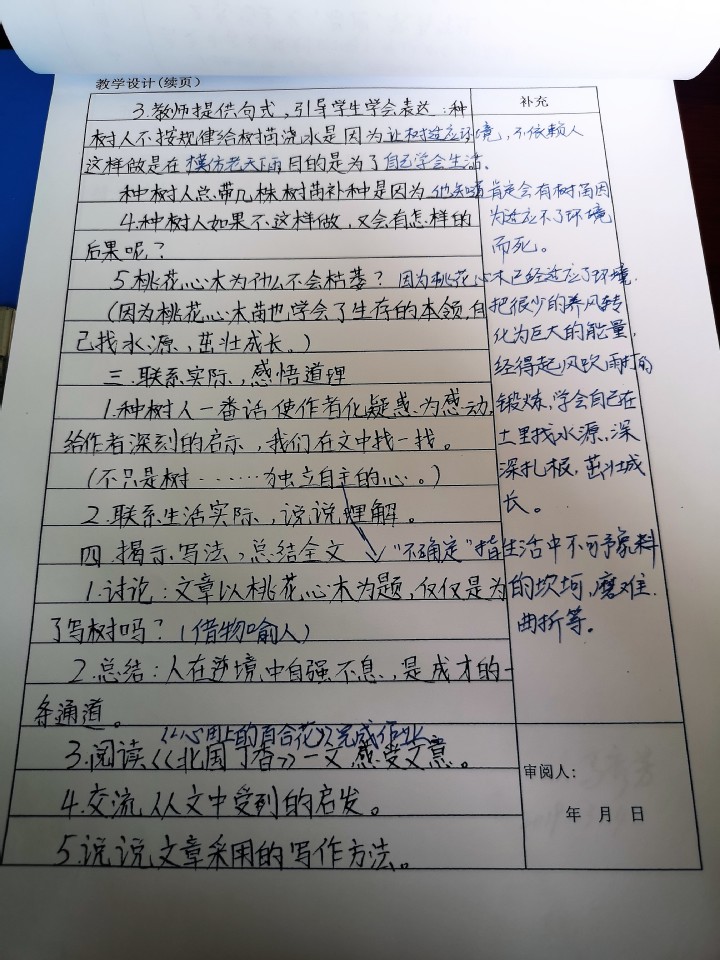 教学设计(续页)
补充
3.教师提供句式,引导学生学会表达:种
树人不按规律给树苗浇水是因为让树适应环境,不依赖人
这样做是在模仿老天下雨目的是为了自己学会生活。
种树人总带几株树苗补种是因为他知道肯定会有树苗因
为适应不了环境
而死。
4.种树人如果不这样做,又会有怎样的
后果呢?
5.桃花心木为什么不会枯萎?因为桃花心木已经适应了环境,
把很少的养风转
化为巨大的能量,
经得起风吹雨打的
锻炼,学会自己在
土里找水源,深
深扎根,茁壮成
长。
(因为桃花心木苗也学会了生存的本领,自
己找水源,茁壮成长。)
三.联系实际,感悟道理
1.种树人一番话使作者化疑惑为感动,
给作者深刻的启示,我们在文中找一找。
(不只是树……独立自主的心。)
2.联系生活实际,说说理解。
“不确定”指生活中不可预料
的坎坷,磨难、
曲折等。
四.揭示写法,总结全文
1.讨论:文章以桃花心木为题,仅仅是为
了写树吗?(借物喻人)
2.总结:人在逆境中自强不息,是成才的一
条通道。
《心田上的百合花》完成作业
3.阅读《北国丁香》一文感受文意。
4.交流从文中受到的启发。
5.说说文章采用的写作方法。
审阅人:
年 月 日